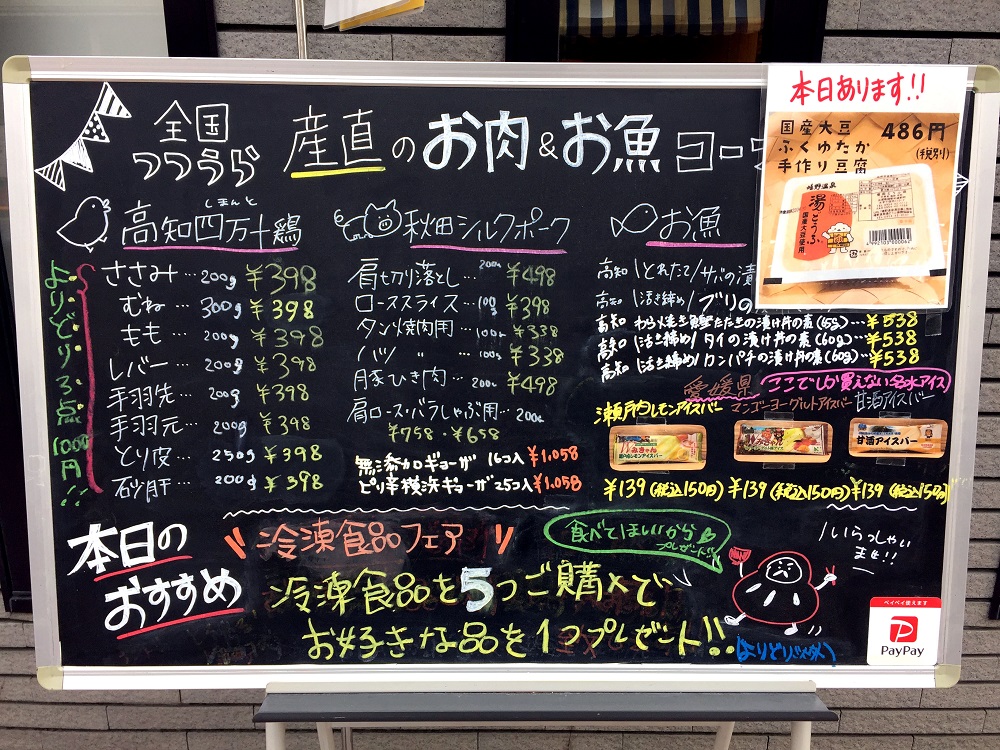 全国
つつうら
産直のお肉&お魚コー
本日あります!!
国産大豆
ふくゆたか
手作り豆腐
486円
(税別)
嬉野温泉
湯どうふ
国産大豆使用
しまんと
高知四万十鶏
よりどり3点1000円!!
ささみ… 200g ¥398
むね… 300g ¥398
もも… 200g ¥398
レバー… 200g ¥398
手羽先… 200g ¥398
手羽元… 200g ¥398
とり皮… 250g ¥398
砂肝… 200g ¥398
秋田シルクポーク
肩切り落とし… 200g ¥498
ローススライス… ¥398
タン焼肉用… 100g ¥338
ハツ 〃 … 100g ¥338
豚ひき肉… 200g ¥498
肩ロース・バラしゃぶ用… 200g
¥758・¥658
無添加ギョーザ 16コ入 ¥1,058
ピリ辛横浜ギョーザ25コ入 ¥1,058
お魚
高知 とれたて/サバの漬
高知 活き締め/ブリの
高知 わら焼き鰹たたきの漬け丼の素(65g)…¥538
高知 活き締め/タイの漬け丼の素(60g)…¥538
高知 活き締め/カンパチの漬け丼の素(60g)…¥538
愛媛県 ここでしか買えない名水アイス
瀬戸内レモンアイスバー マンゴーヨーグルトアイスバー 甘酒アイスバー
甘酒アイスバー
¥139(税込150円) ¥139(税込150円) ¥139(税込150円)
本日の
おすすめ
冷凍食品フェア
食べてほしいから
プレゼント!!
冷凍食品を5つご購入で
お好きな品を1つプレゼント!!
いらっしゃい
ませ!!
ペイペイ使えます
PayPay